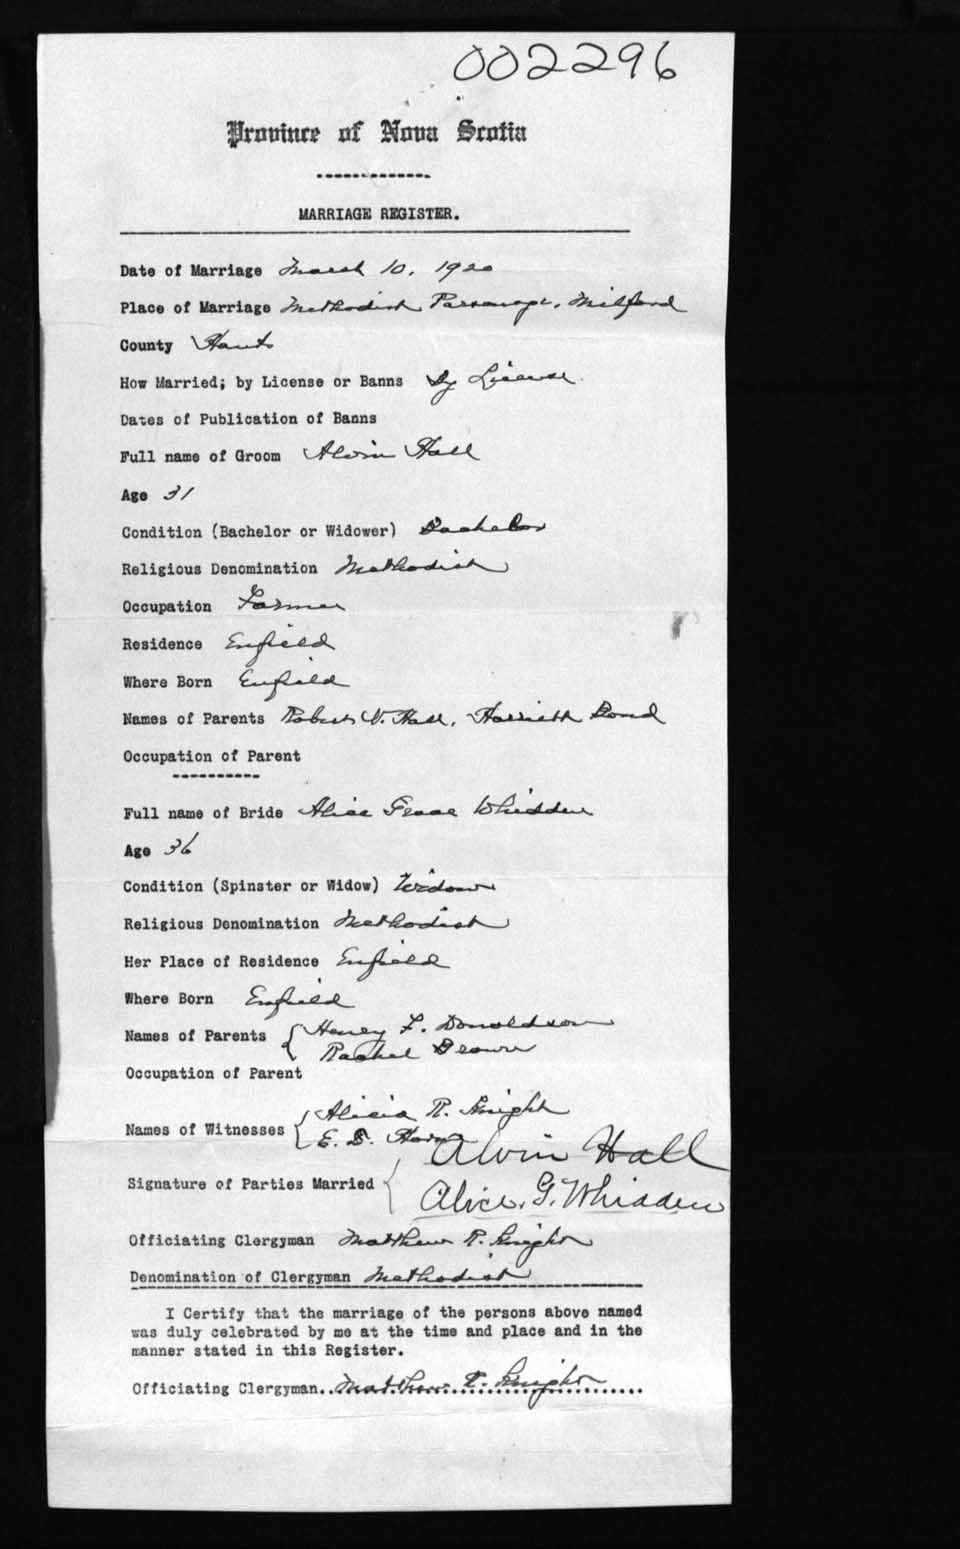 002296
Province of Nova Scotia
MARRIAGE REGISTER.
Date of Marriage March 10, 1920
Place of Marriage Methodist Parsonage, Milford
County Hants
How Married; by License or Banns By License
Dates of Publication of Banns
Full name of Groom Alvin Hall
Age 31
Condition (Bachelor or Widower) Bachelor
Religious Denomination Methodist
Occupation Farmer
Residence Enfield
Where Born Enfield
Names of Parents Robert V. Hall, Harriett Bond
Occupation of Parent
Full name of Bride Alice Grace Whidden
Age 36
Condition (Spinster or Widow) Widow
Religious Denomination Methodist
Her Place of Residence Enfield
Where Born Enfield
Names of Parents Henry F. Donaldson
Rachel Brown
Occupation of Parent
Names of Witnesses Alicia R. Knight
E. B. Horne
Alvin Hall
Signature of Parties Married
Alice. G. Whidden
Officiating Clergyman Matthew R. Knight
Denomination of Clergyman Methodist
I Certify that the marriage of the persons above named
was duly celebrated by me at the time and place and in the
manner stated in this Register.
Officiating Clergyman..Matthew R. Knight